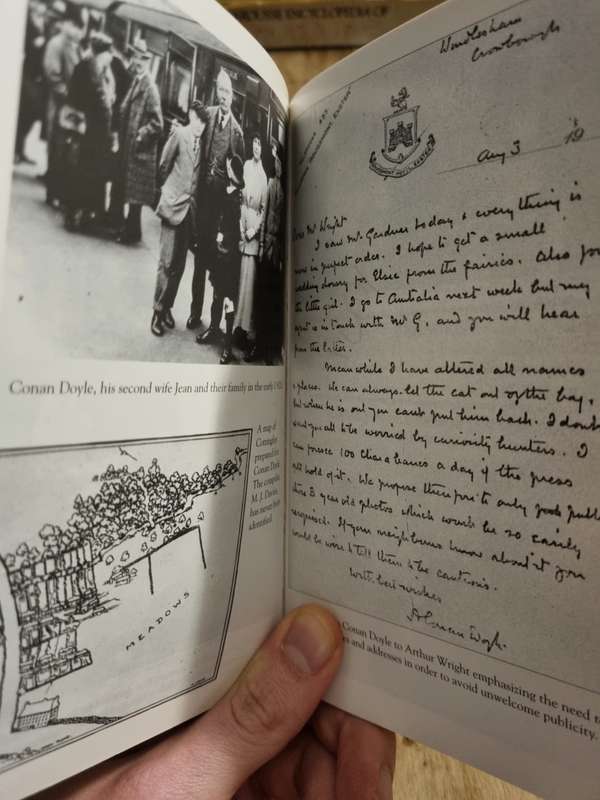 ENCYCLOPEDIA OF
Conan Doyle, his second wife Jean and their family in the early
A map of
Cottingley
prepared for
Conan Doyle.
The compiler,
M. J. Davis,
has never been
identified.
MEADOWS
Windlesham
Crowborough
Aug 3 19
Dear Mr Wright
I saw Mr. Gardner today & everything is
now in perfect order. I hope to get a small
wedding dowry for Elsie from the fairies. Also for
the little girl. I go to Australia next week but my
agent is in touch with Mr G. and you will hear
from the latter.
Meanwhile I have altered all names
& places. We can always let the cat out of the bag,
but when he is out you cant put him back. I dont
want you all to be worried by curiosity hunters. I
can foresee 100 charabancs a day if the press
got hold of it. We propose therefore to only publish
three year old photos which would be so easily
recognised. If your neighbours know about it you
would be wise to tell them to be cautious.
With best wishes
A Conan Doyle.
Conan Doyle to Arthur Wright emphasizing the need to
and addresses in order to avoid unwelcome publicity.